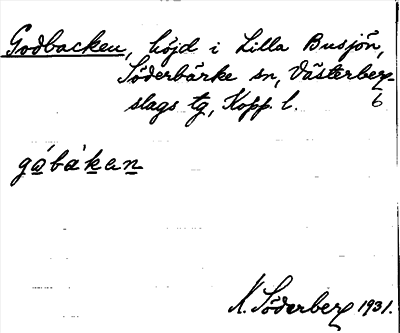 Godbacken, höjd i Lilla Busjön,
Söderbärke sn, Västerberg-
slags tg, Kopp. l. 6
gábàkan
K. Söderberg 1931.